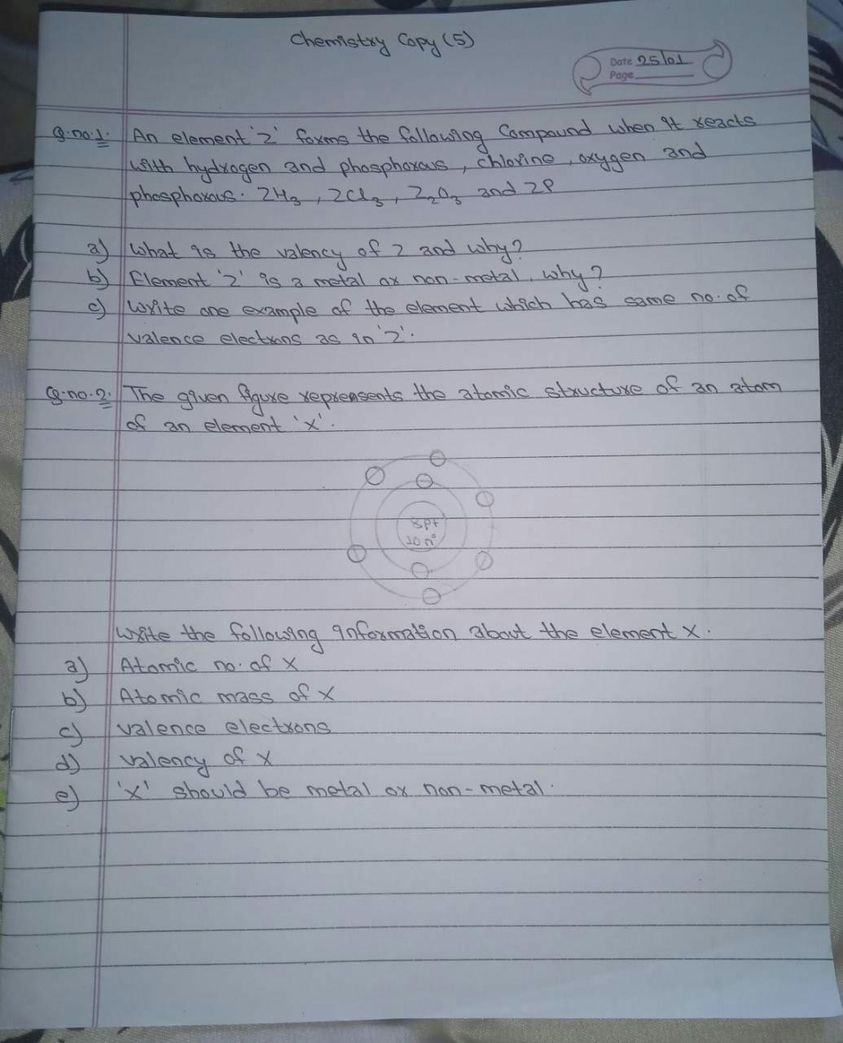 Chemistry Copy (5)
Date 25/01
Page
Q.no.1. An element 'Z' forms the following Compound when it reacts
with hydrogen and phosphorous, chlorine, oxygen and
phosphorous. ZH₃, ZCl₃, Z₂O₃ and ZP
a) What is the valency of Z and why?
b) Element 'Z' is a metal or non-metal. why?
c) Write one example of the element which has same no. of
valence electrons as in 'Z'.
Q.no.2. The given figure reprensents the atomic structure of an atom
of an element 'x'.
8p+
10n°
Write the following information about the element X.
a) Atomic no. of X
b) Atomic mass of X
c) valence electrons
d) valency of X
e) 'X' should be metal or non-metal.